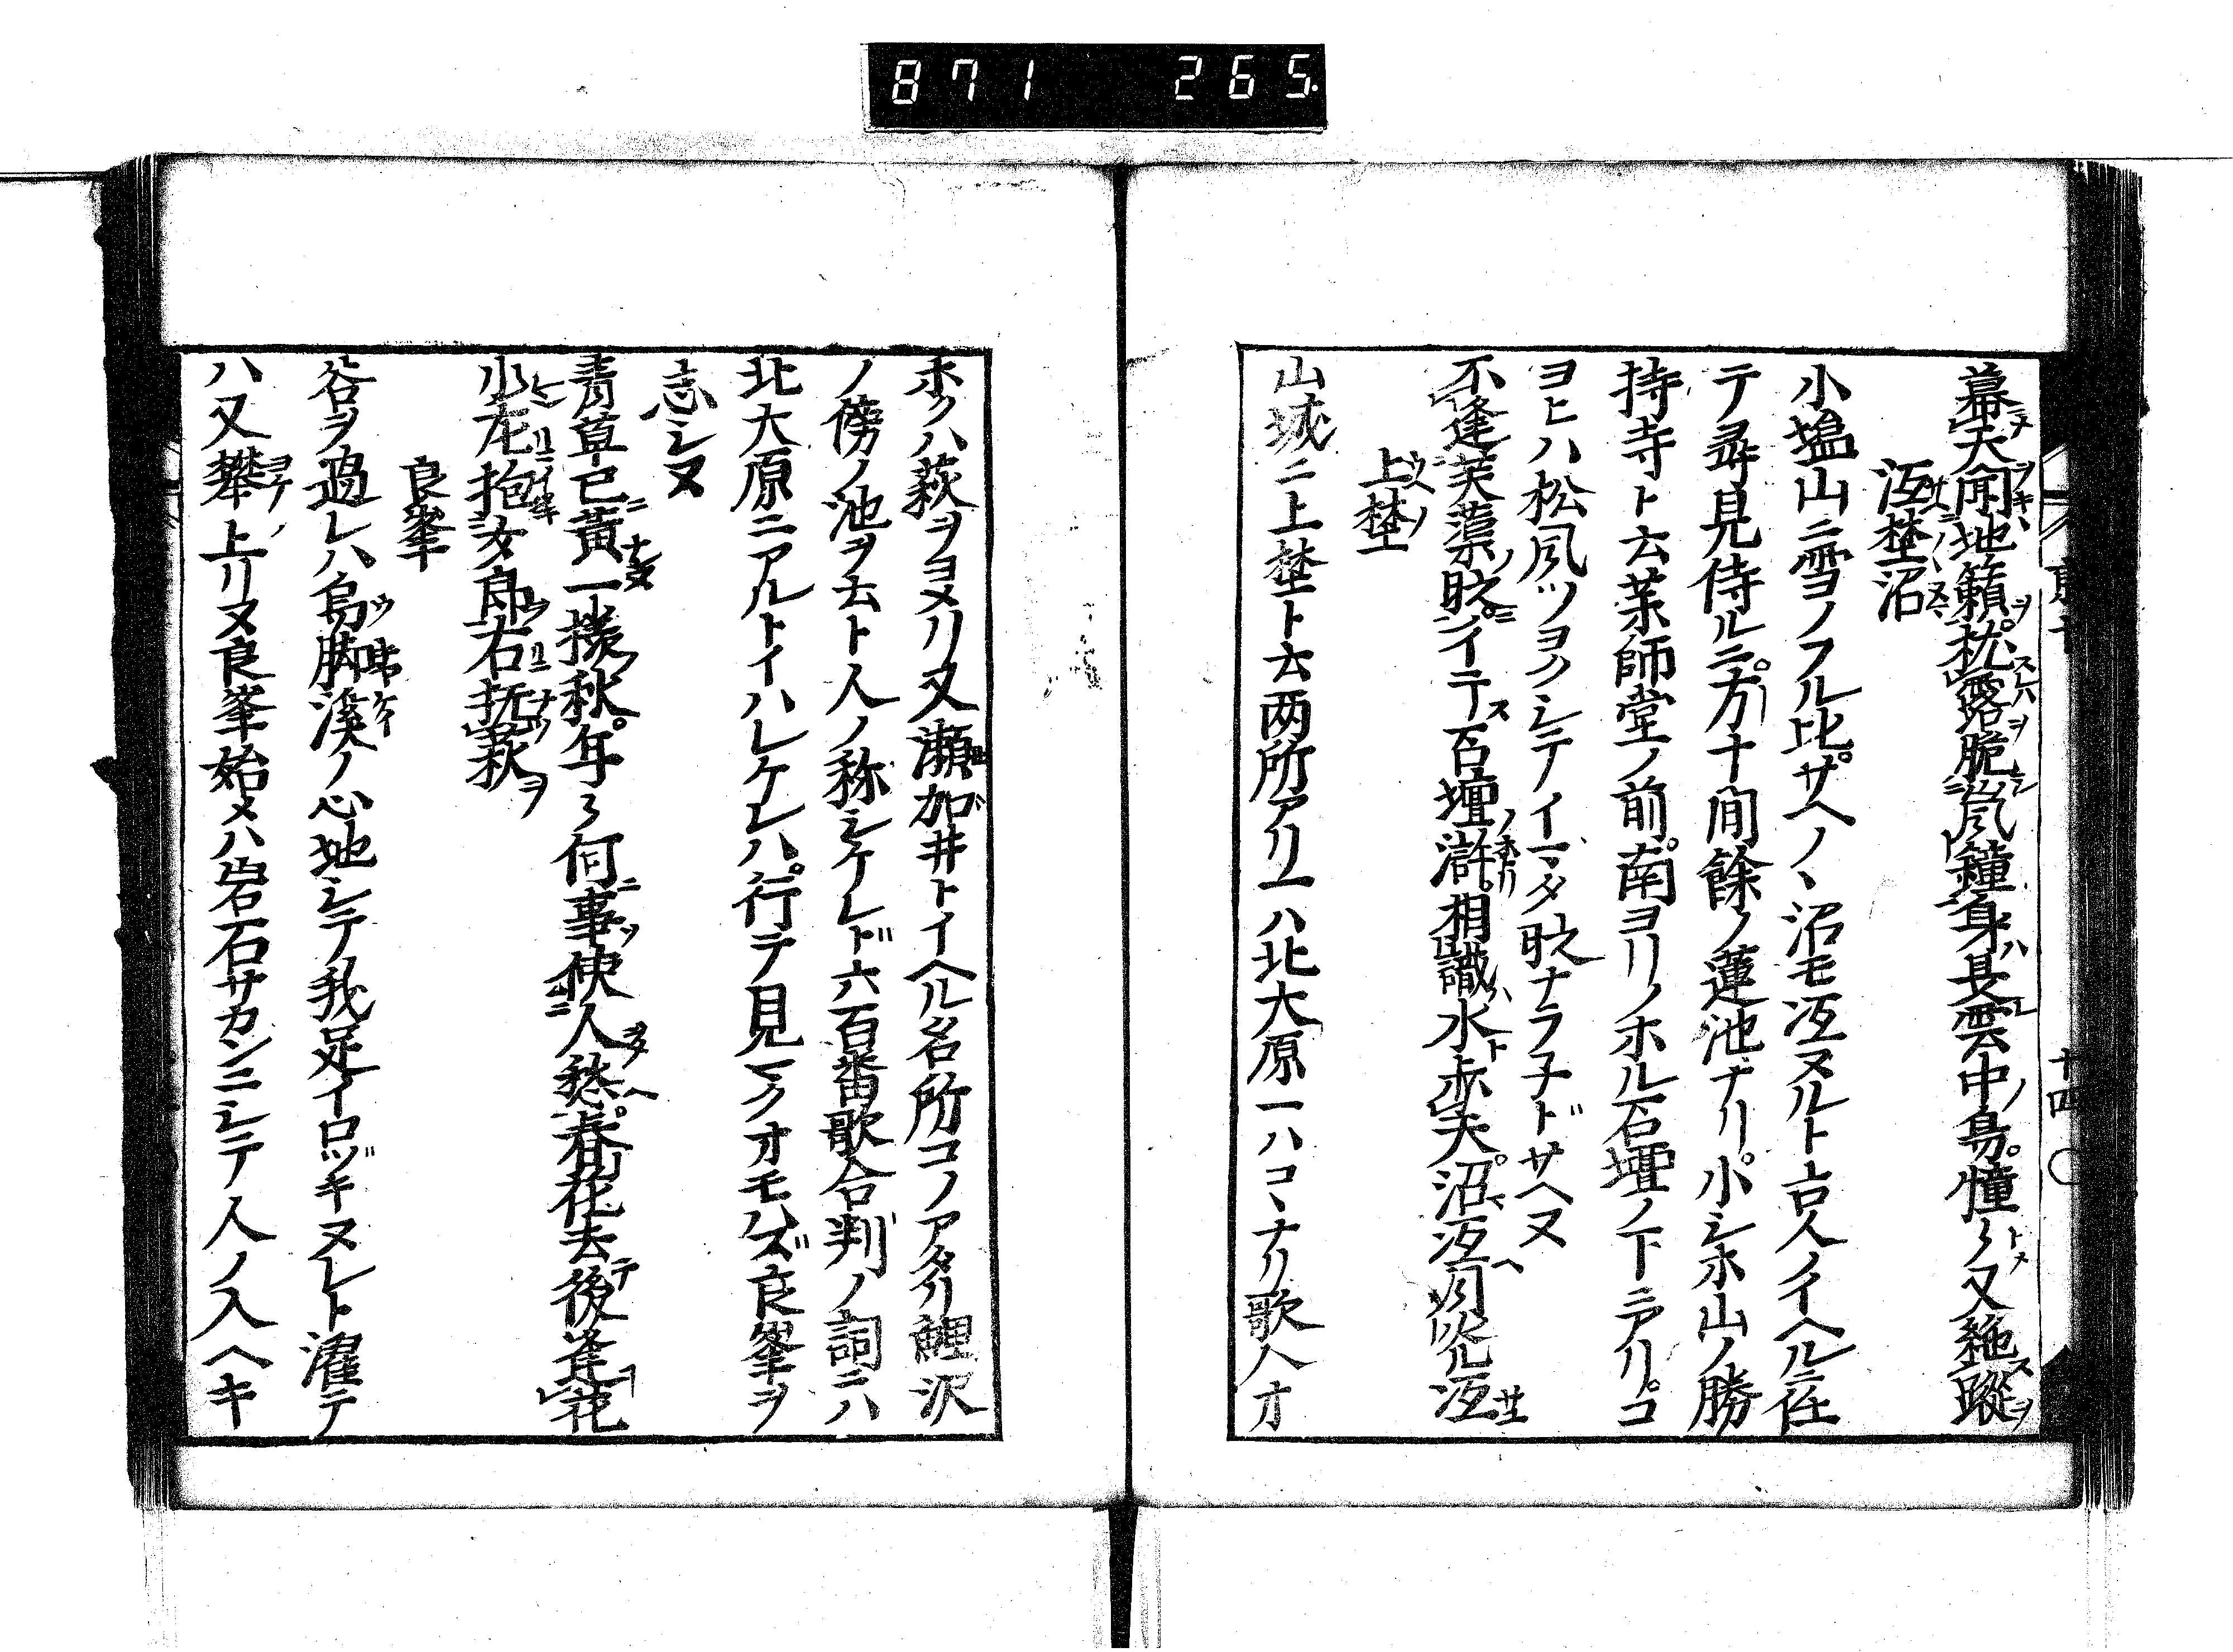 871 265.
幕天聞地籟枕露脆嵐鐘身ハ是雲中鳥憧々又絶蹤
冱埜沼
小塩山ニ雪ノフル比サヘノヽ沼モ冱ヌルト古人ノイヘルニ任
テ尋見侍ルニ方十間餘ノ蓮池ナリ小シホ山ノ勝
持寺ト云薬師堂ノ前南ヨリノホル石壇ノ下ニアリコ
ヨヒハ松風ツヨクシテイマタ晄ナラ子ドサヘヌ
不逢芙蕖晄ニイテ石壇滸相識水赤天沼冱
上埜
山城ニ上埜ト云两所アリ一ハ北大原一ハコヽナリ歌人オ
ホクハ萩ヲヨメリ又瀬加井トイヘル名所コノアタリ鯉沢
ノ傍ノ池ヲ云ト人ノ称シケレド六百番歌合判ノ詞ニハ
北大原ニアルトイハレケレハ行テ見マクオモハズ良峯ヲ
志シヌ
青草已黄一様秋年々何事使人愁春花去後逢花
小左抱女郎右抚萩
良峯
谷ヲ過レハ烏脚溪ノ心地シテ我足イロヅキヌレト濯テ
ハ又攀上リヌ良峯始メハ岩石サカンニシテ人ノ入ヘキ
十四